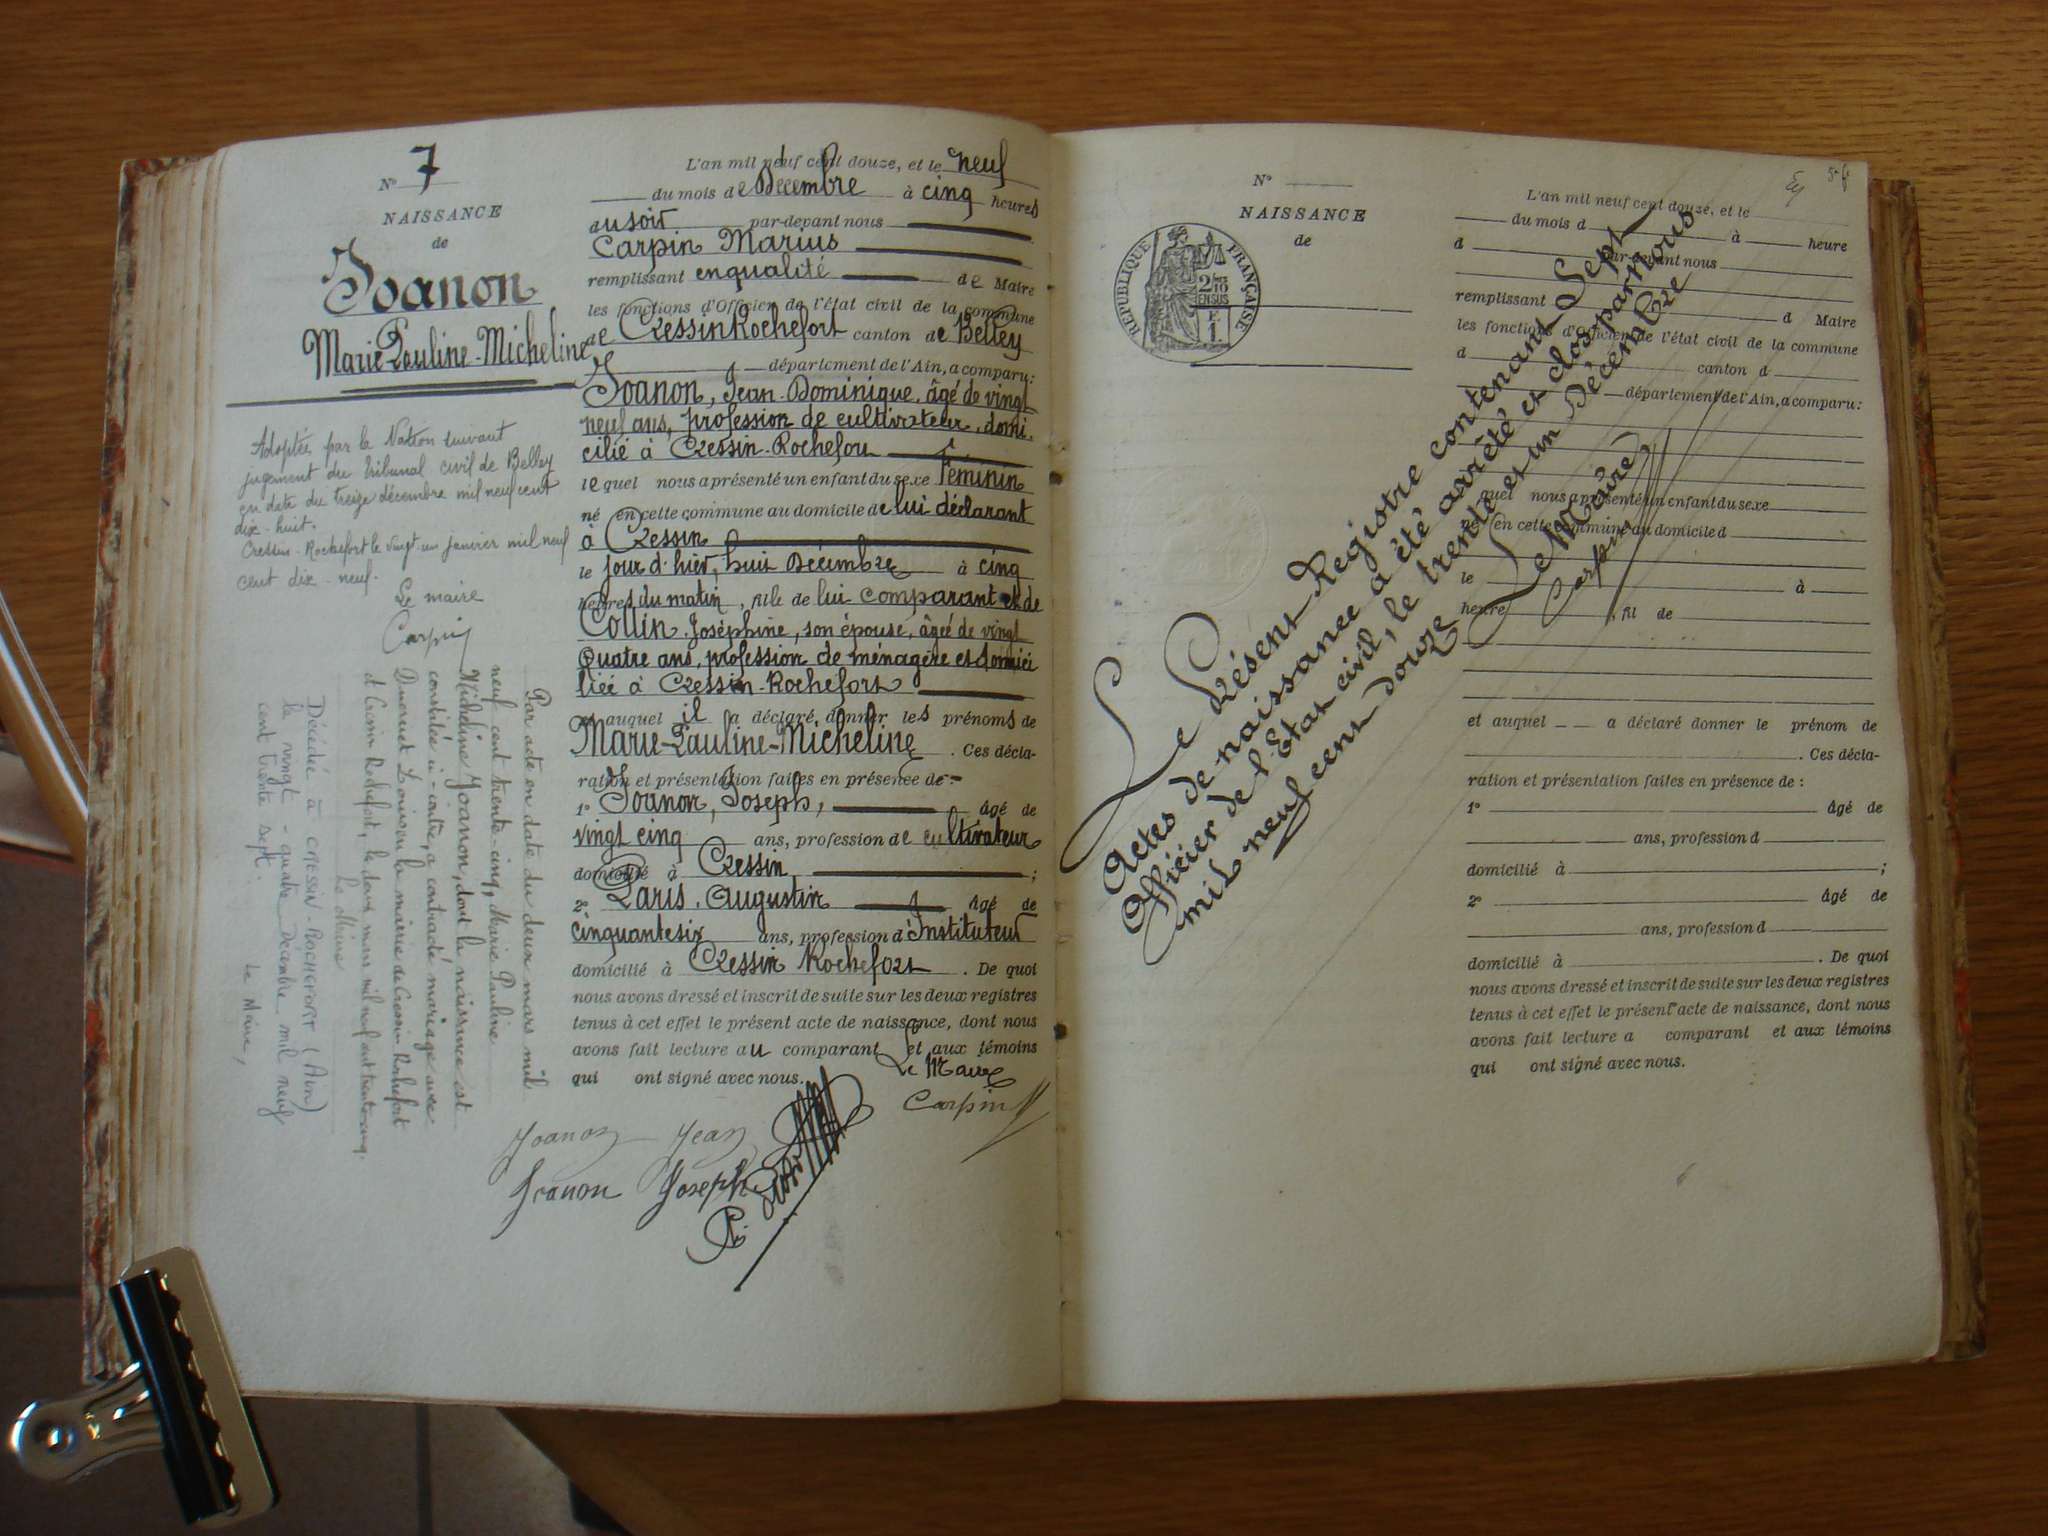 N° 7
NAISSANCE
de
Joanon
Marie-Pauline-Micheline
Adoptée par la Nation suivant
jugement du tribunal civil de Belley
en date du treize décembre mil neuf cent
dix-huit.
Cressin-Rochefort le vingt-un janvier mil neuf
cent dix-neuf.
Le maire
Carpin
Par acte en date du deux mars mil
neuf cent trente-cinq, Marie Pauline
Micheline Joanon, dont la naissance est
constatée ci-contre, a contracté mariage avec
Ducruet Louis en la mairie de Cressin Rochefort
et Cressin Rochefort, le deux mars mil neuf cent trente cinq.
Le Maire
Décédée à CRESSIN-ROCHEFORT (Ain)
le vingt-quatre Décembre mil neuf
cent trente sept.
Le Maire,
L'an mil neuf cent douze, et le neuf
du mois de Décembre à cinq heures
du soir par-devant nous
Carpin Marius
remplissant en qualité de Maire
les fonctions d'Officier de l'état civil de la commune
de Cressin Rochefort canton de Belley
département de l'Ain, a comparu:
Joanon, Jean-Dominique, âgé de vingt
neuf ans, profession de cultivateur, domi-
cilié à Cressin-Rochefort
lequel nous a présenté un enfant du sexe Féminin
né en cette commune au domicile de lui déclarant
à Cressin
le jour d'hier, huit Décembre à cinq
heures du matin, fille de lui comparant et de
Collin Joséphine, son épouse, âgée de vingt
quatre ans, profession de ménagère et domici
liée à Cressin-Rochefort
et auquel il a déclaré donner les prénoms de
Marie-Pauline-Micheline. Ces décla-
ration et présentation faites en présence de:
1° Joanon, Joseph, âgé de
vingt cinq ans, profession de cultivateur
domicilié à Cressin;
2° Paris, Augustin âgé de
cinquante six ans, profession d'Instituteur
domicilié à Cressin Rochefort. De quoi
nous avons dressé et inscrit de suite sur les deux registres
tenus à cet effet le présent acte de naissance, dont nous
avons fait lecture au comparant et aux témoins
qui ont signé avec nous.
Le Maire
Carpin
Joanon Jean
Joanon Joseph
N°
NAISSANCE
de
RÉPUBLIQUE FRANÇAISE
2/10 EN SUS
L'an mil neuf cent douze, et le
du mois d à heure
d par-devant nous
remplissant d Maire
les fonctions d'Officier de l'état civil de la commune
d canton d
département de l'Ain, a comparu:
quel nous a présenté un enfant du sexe
né en cette commune au domicile d
le à
heure, fil de
et auquel a déclaré donner le prénom de
. Ces décla-
ration et présentation faites en présence de:
1° âgé de
ans, profession d
domicilié à ;
2° âgé de
ans, profession d
domicilié à . De quoi
nous avons dressé et inscrit de suite sur les deux registres
tenus à cet effet le présent acte de naissance, dont nous
avons fait lecture a comparant et aux témoins
qui ont signé avec nous.
Le Présent Registre contenant Sept
Actes de naissance a été arrêté et clos par Nous
Officier de l'Etat civil, le trente et un Décembre
mil neuf cent douze
Le Maire
Carpin